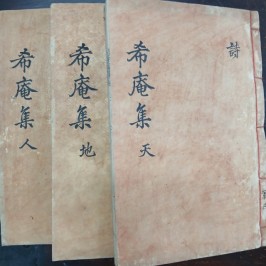 詩
希庵集 天
希庵集 地
希庵集 人